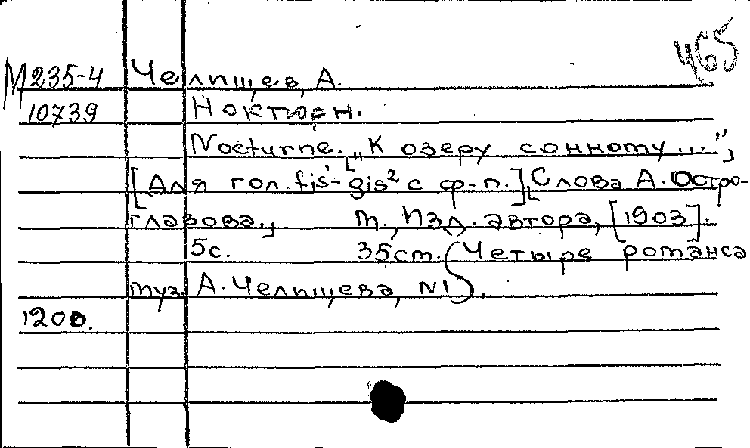 465
М235-4 Челищев, А.
10739 Ноктюрн.
Nocturne. „К озеру сонному...",
[Для гол. fis¹-gis² с ф-п.] Слова А. Остро-
глазова., М., Изд. автора, [1903].
5с. 35см. (Четыре романса
муз. А. Челищева, №1).
1200.